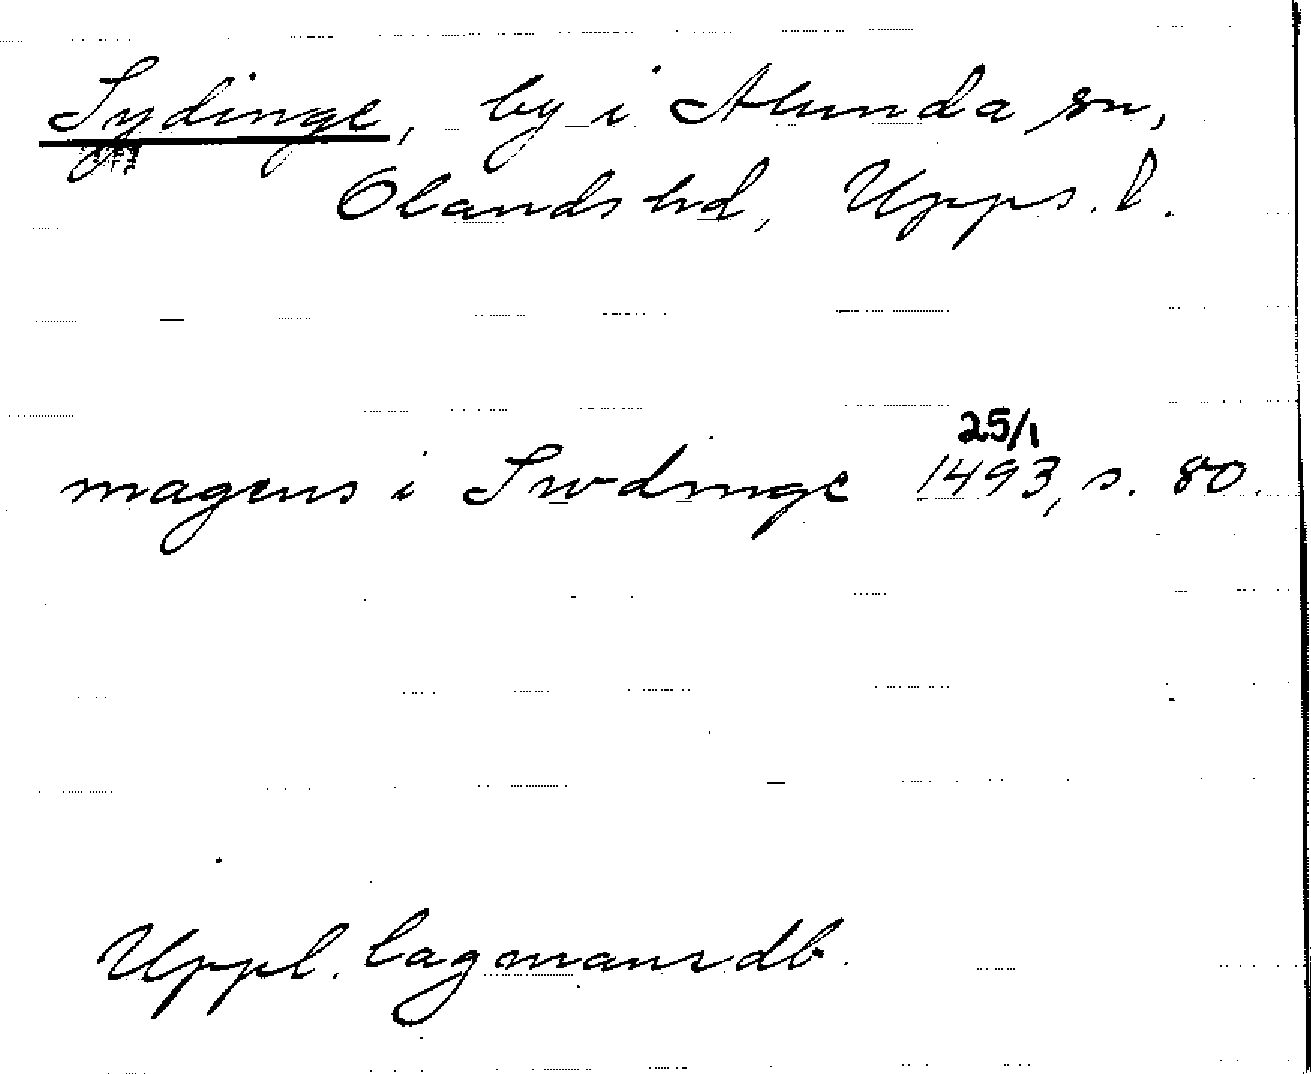 Sydinge, by i Alunda sn,
Olands hd, Upps. l.
25/1
magnus i Swdinge 1493, s. 80.
Uppl. lagmansdb.